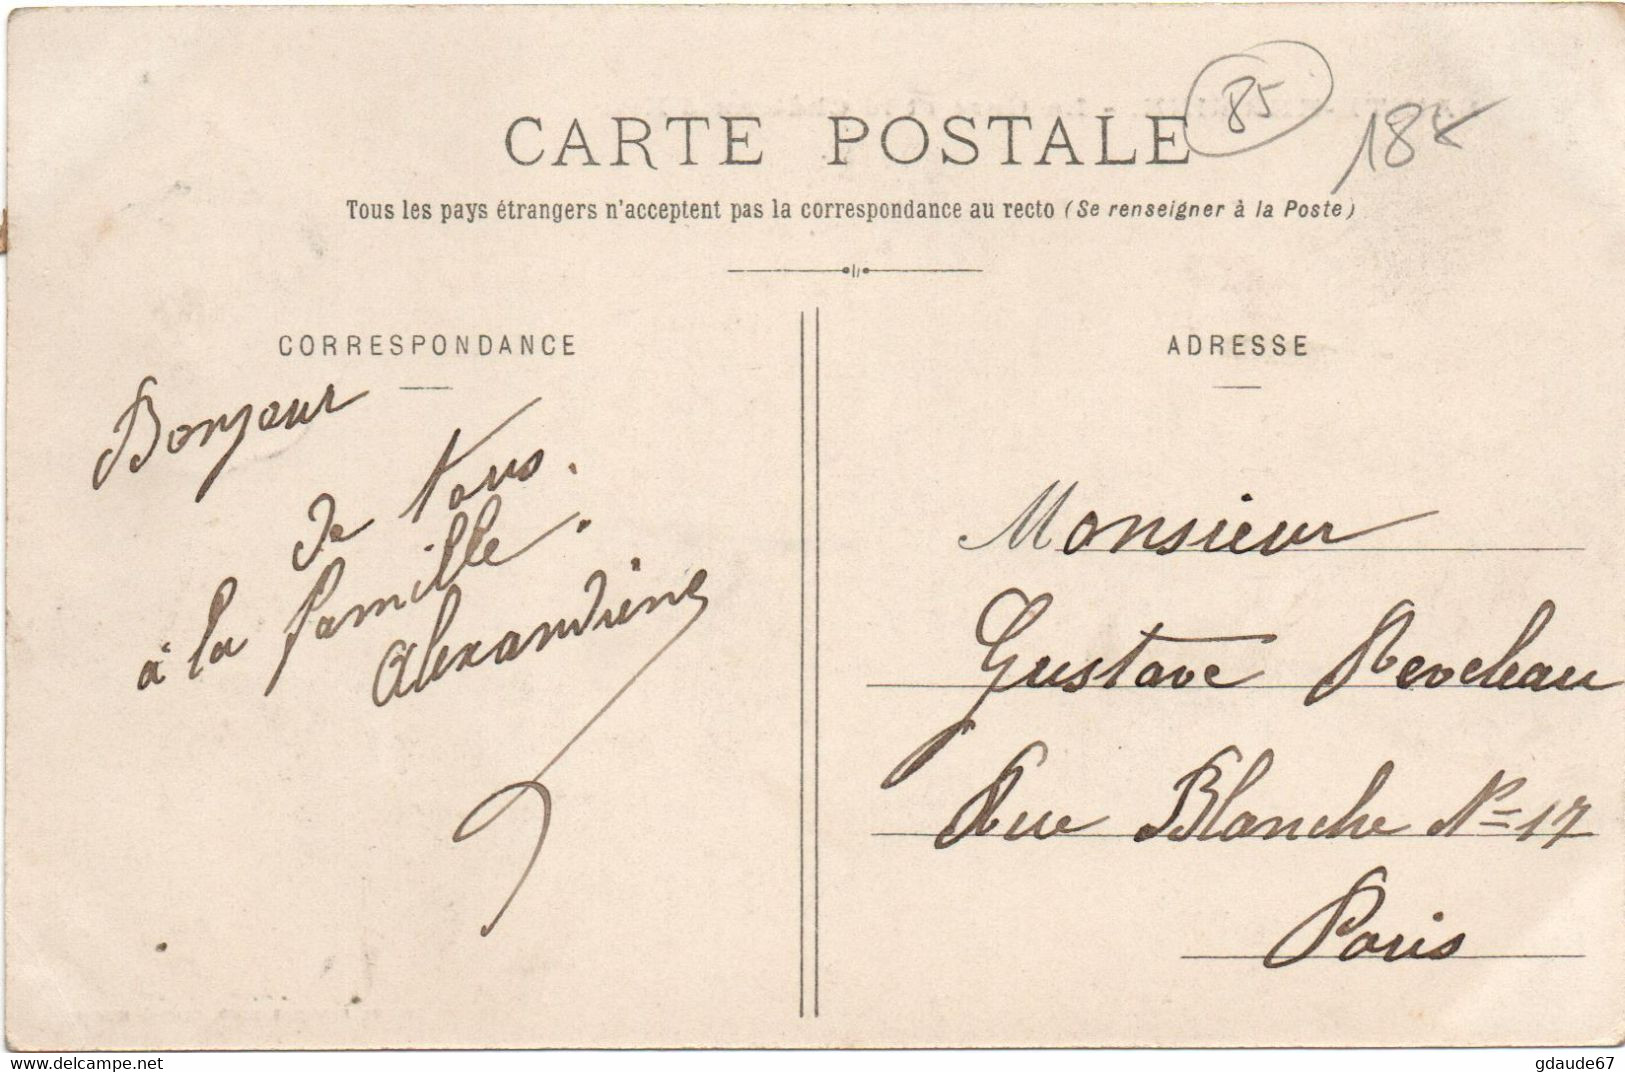 85
18€
CARTE POSTALE
Tous les pays étrangers n'acceptent pas la correspondance au recto (Se renseigner à la Poste)
CORRESPONDANCE
Bonjour
de tous
à la famille.
Alexandrine
ADRESSE
Monsieur
Gustave Reveleau
Rue Blanche No 17
Paris
www.delcampe.net
gdaude67